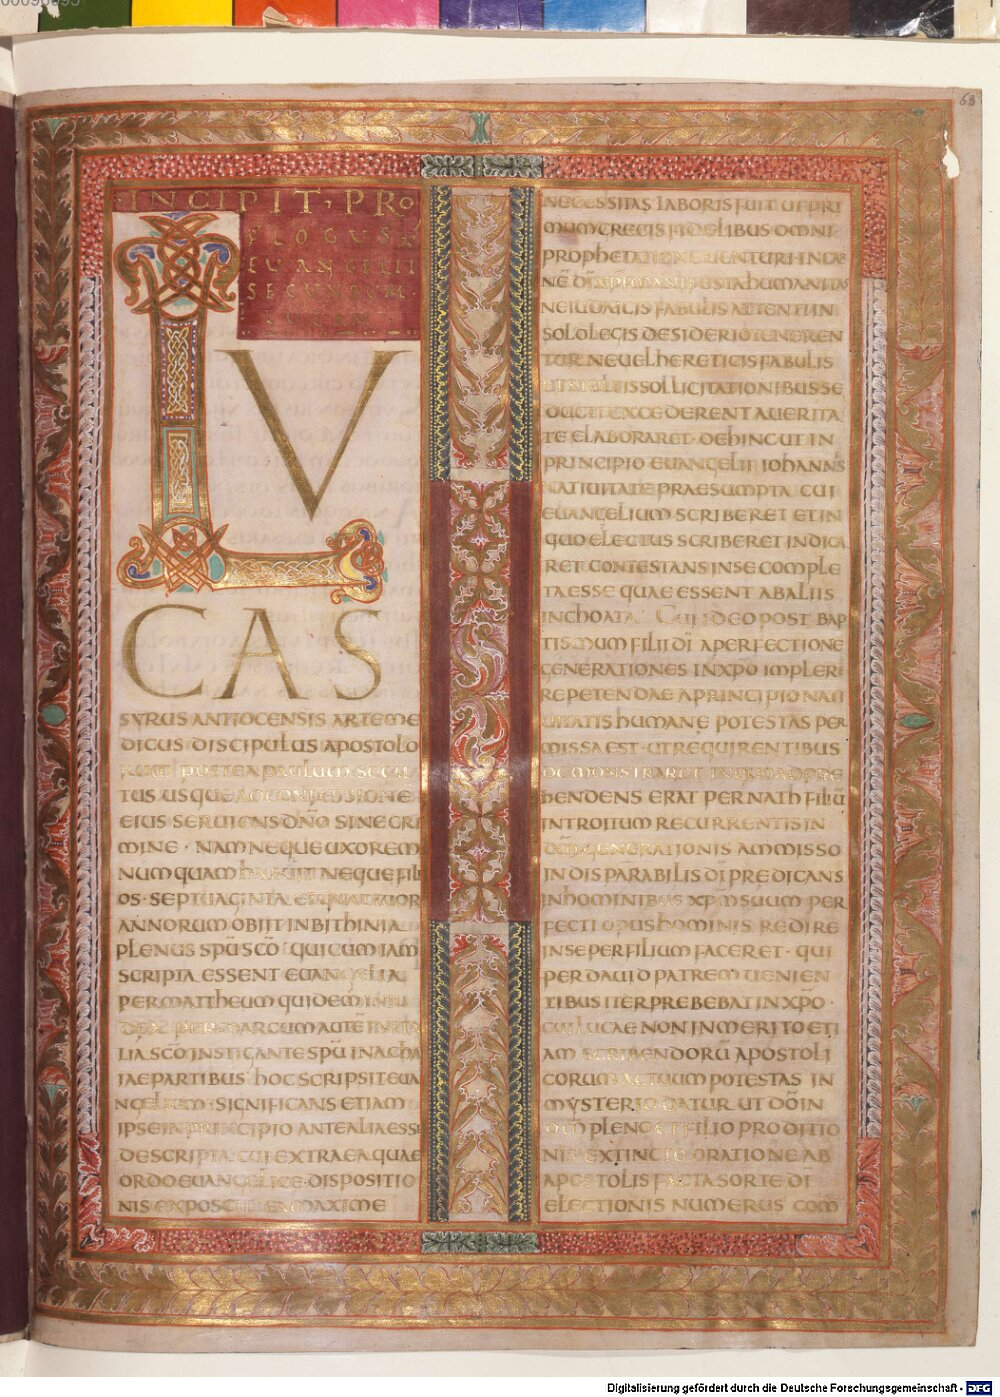 INCIPIT PRO
LOGUS
EVANGELII
SECUNDUM
LV
CAS
SYRUS ANTIOCENSIS ARTE ME
DICUS DISCIPULUS APOSTOLO
RUM POSTEA PAULUM SECU
TUS USQUE AD CONFESSIONĒ
EIUS SERVIENS DN̄O SINE CRI
MINE · NAM NEQUE UXOREM
NUMQUAM HABUIT NEQUE FILI
OS · SEPTUAGINTA ET
ANNORUM OBIIT IN BITHINIA
PLENUS SPŪ SCŌ · QUI CUM IAM
SCRIPTA ESSENT EVANGELIA
PER MATTHEUM QUIDEM IN IU
DEA · PER MARCUM AUTĒ IN ITA
LIA SCŌ INSTIGANTE SPŪ IN ACHA
IAE PARTIBUS HOC SCRIPSIT EVA
NGELIUM · SIGNIFICANS ETIAM
IPSE IN PRINCIPIO ANTE ALIA ESSE
DESCRIPTA · CUI EXTRA EA QUAE
ORDO EVANGELICE DISPOSITIO
NIS EXPOSCIT EA MAXIME
68
NECESSITAS LABORIS FUIT UT PRI
MUM GRECIS FIDELIBUS OMNI
PROPHETATIONE VENTURI IN CAR
NĒ DĪ XPĪ MANIFESTA HUMANITAS
NE IUDAICIS FABULIS ATTENTI IN
SOLO LEGIS DESIDERIO TENEREN
TUR NE VEL HERETICIS FABULIS
ET STULTIS SOLLICITATIONIBUS SE
DUCTI EXCEDERENT A VERITA
TE ELABORARET · DEHINC UT IN
PRINCIPIO EVANGELII IOHANNIS
NATIVITATE PRAESUMPTA CUI
EVANGELIUM SCRIBERET ET IN
QUO ELECTUS SCRIBERET INDICA
RET CONTESTANS IN SE COMPLE
TA ESSE QUAE ESSENT AB ALIIS
INCHOATA · CUI IDEO POST BAP
TISMUM FILII DĪ A PERFECTIONE
GENERATIONES IN XPŌ IMPLERI
REPETENDAE A PRINCIPIO NATI
VITATIS HUMANĘ POTESTAS PER
MISSA EST · UT REQUIRENTIBUS
DEMONSTRARET IN QUO ADPRE
HENDENS ERAT PER NATH FILIŪ
INTROITUM RECURRENTIS IN
DM̄ GENERATIONIS AMMISSO
INDISPARABILIS DĪ PREDICANS
IN HOMINIBUS XPM̄ SUUM PER
FECTI OPUS HOMINIS REDIRE
IN SE PER FILIUM FACERET · QUI
PER DAVID PATREM VENIEN
TIBUS ITER PREBEBAT IN XPŌ ·
CUI LUCAE NON INMERITO ETI
AM SCRIBENDORŪ APOSTOLI
CORUM ACTUUM POTESTAS IN
MYSTERIO DATUR UT DŌ IN
DM̄ PLENO ET FILIO PRODITIO
NIS EXTINCTO ORATIONE AB
APOSTOLIS FACTA SORTE DĪ
ELECTIONIS NUMERUS COM
Digitalisierung gefördert durch die Deutsche Forschungsgemeinschaft - DFG